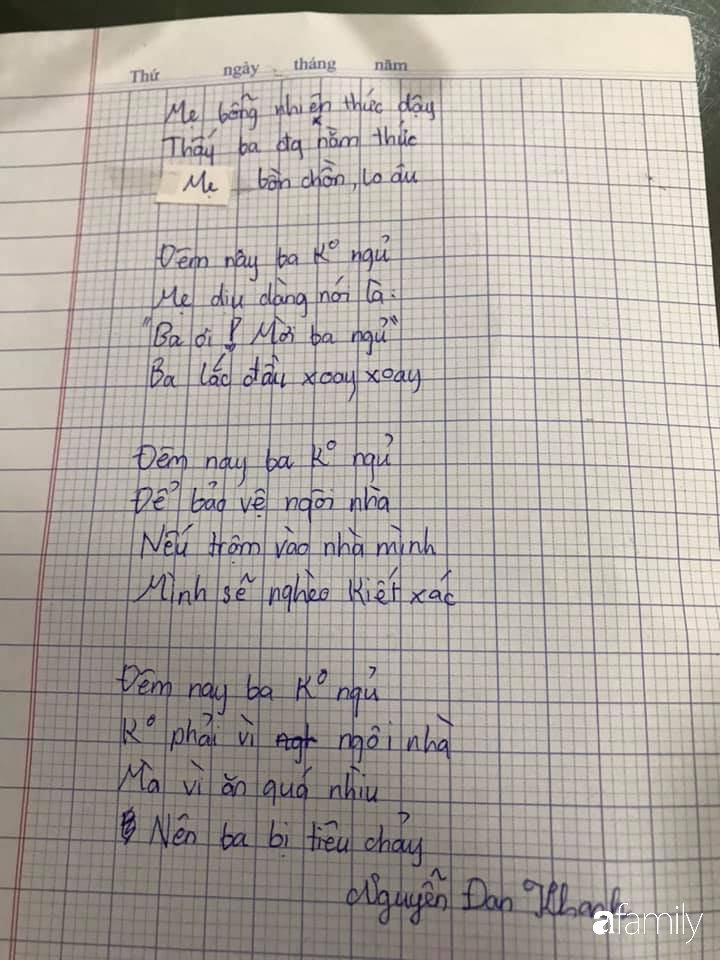 Thứ ngày tháng năm
Mẹ bỗng nhiên thức dậy
Thấy ba đg nằm thức
Mẹ bồn chồn, lo âu
Đêm nay ba K° ngủ
Mẹ dịu dàng nói là:
"Ba ơi! Mời ba ngủ"
Ba lắc đầu xoay xoay
Đêm nay ba K° ngủ
Để bảo vệ ngôi nhà
Nếu trộm vào nhà mình
Mình sẽ nghèo kiết xác
Đêm nay ba K° ngủ
K° phải vì ngôi nhà
Mà vì ăn quá nhìu
Nên ba bị tiêu chảy
Nguyễn Đan Khanh
afamily